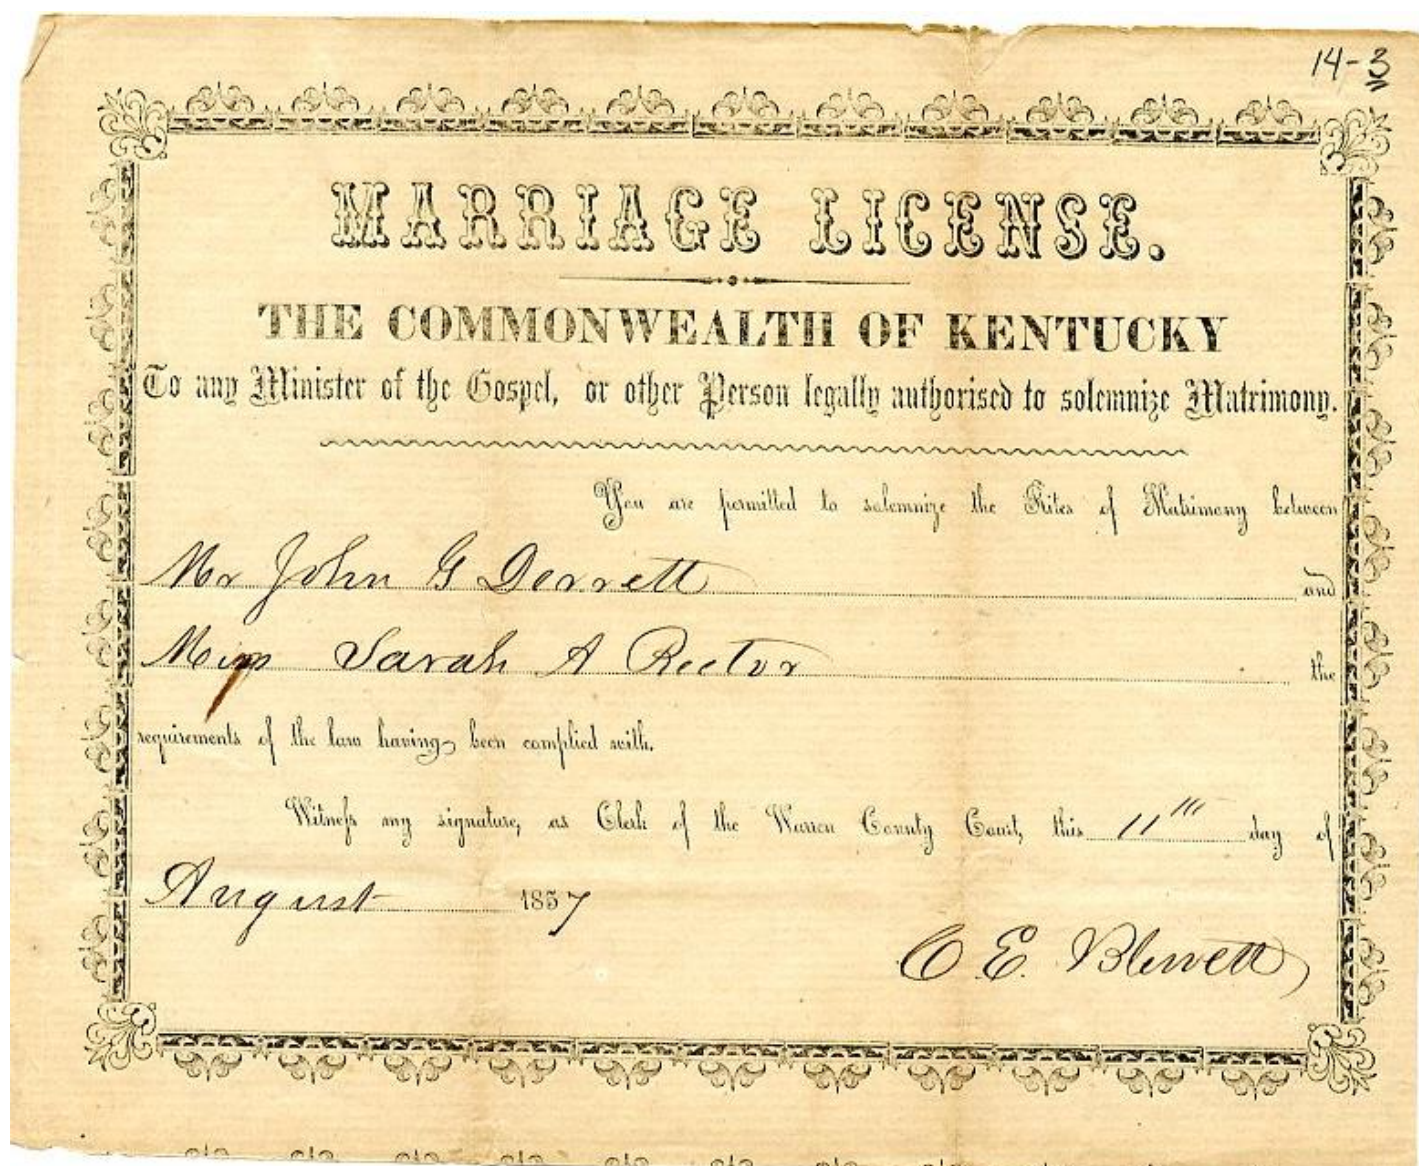 14-3
MARRIAGE LICENSE.
THE COMMONWEALTH OF KENTUCKY
To any Minister of the Gospel, or other Person legally authorised to solemnize Matrimony.
You are permitted to solemnize the Rites of Matrimony between
Mr John G Dorrett and
Miss Sarah A Rector the
requirements of the law having been complied with.
Witness my signature, as Clerk of the Warren County Court, this 11th day of
August 1857
C E. Blewett